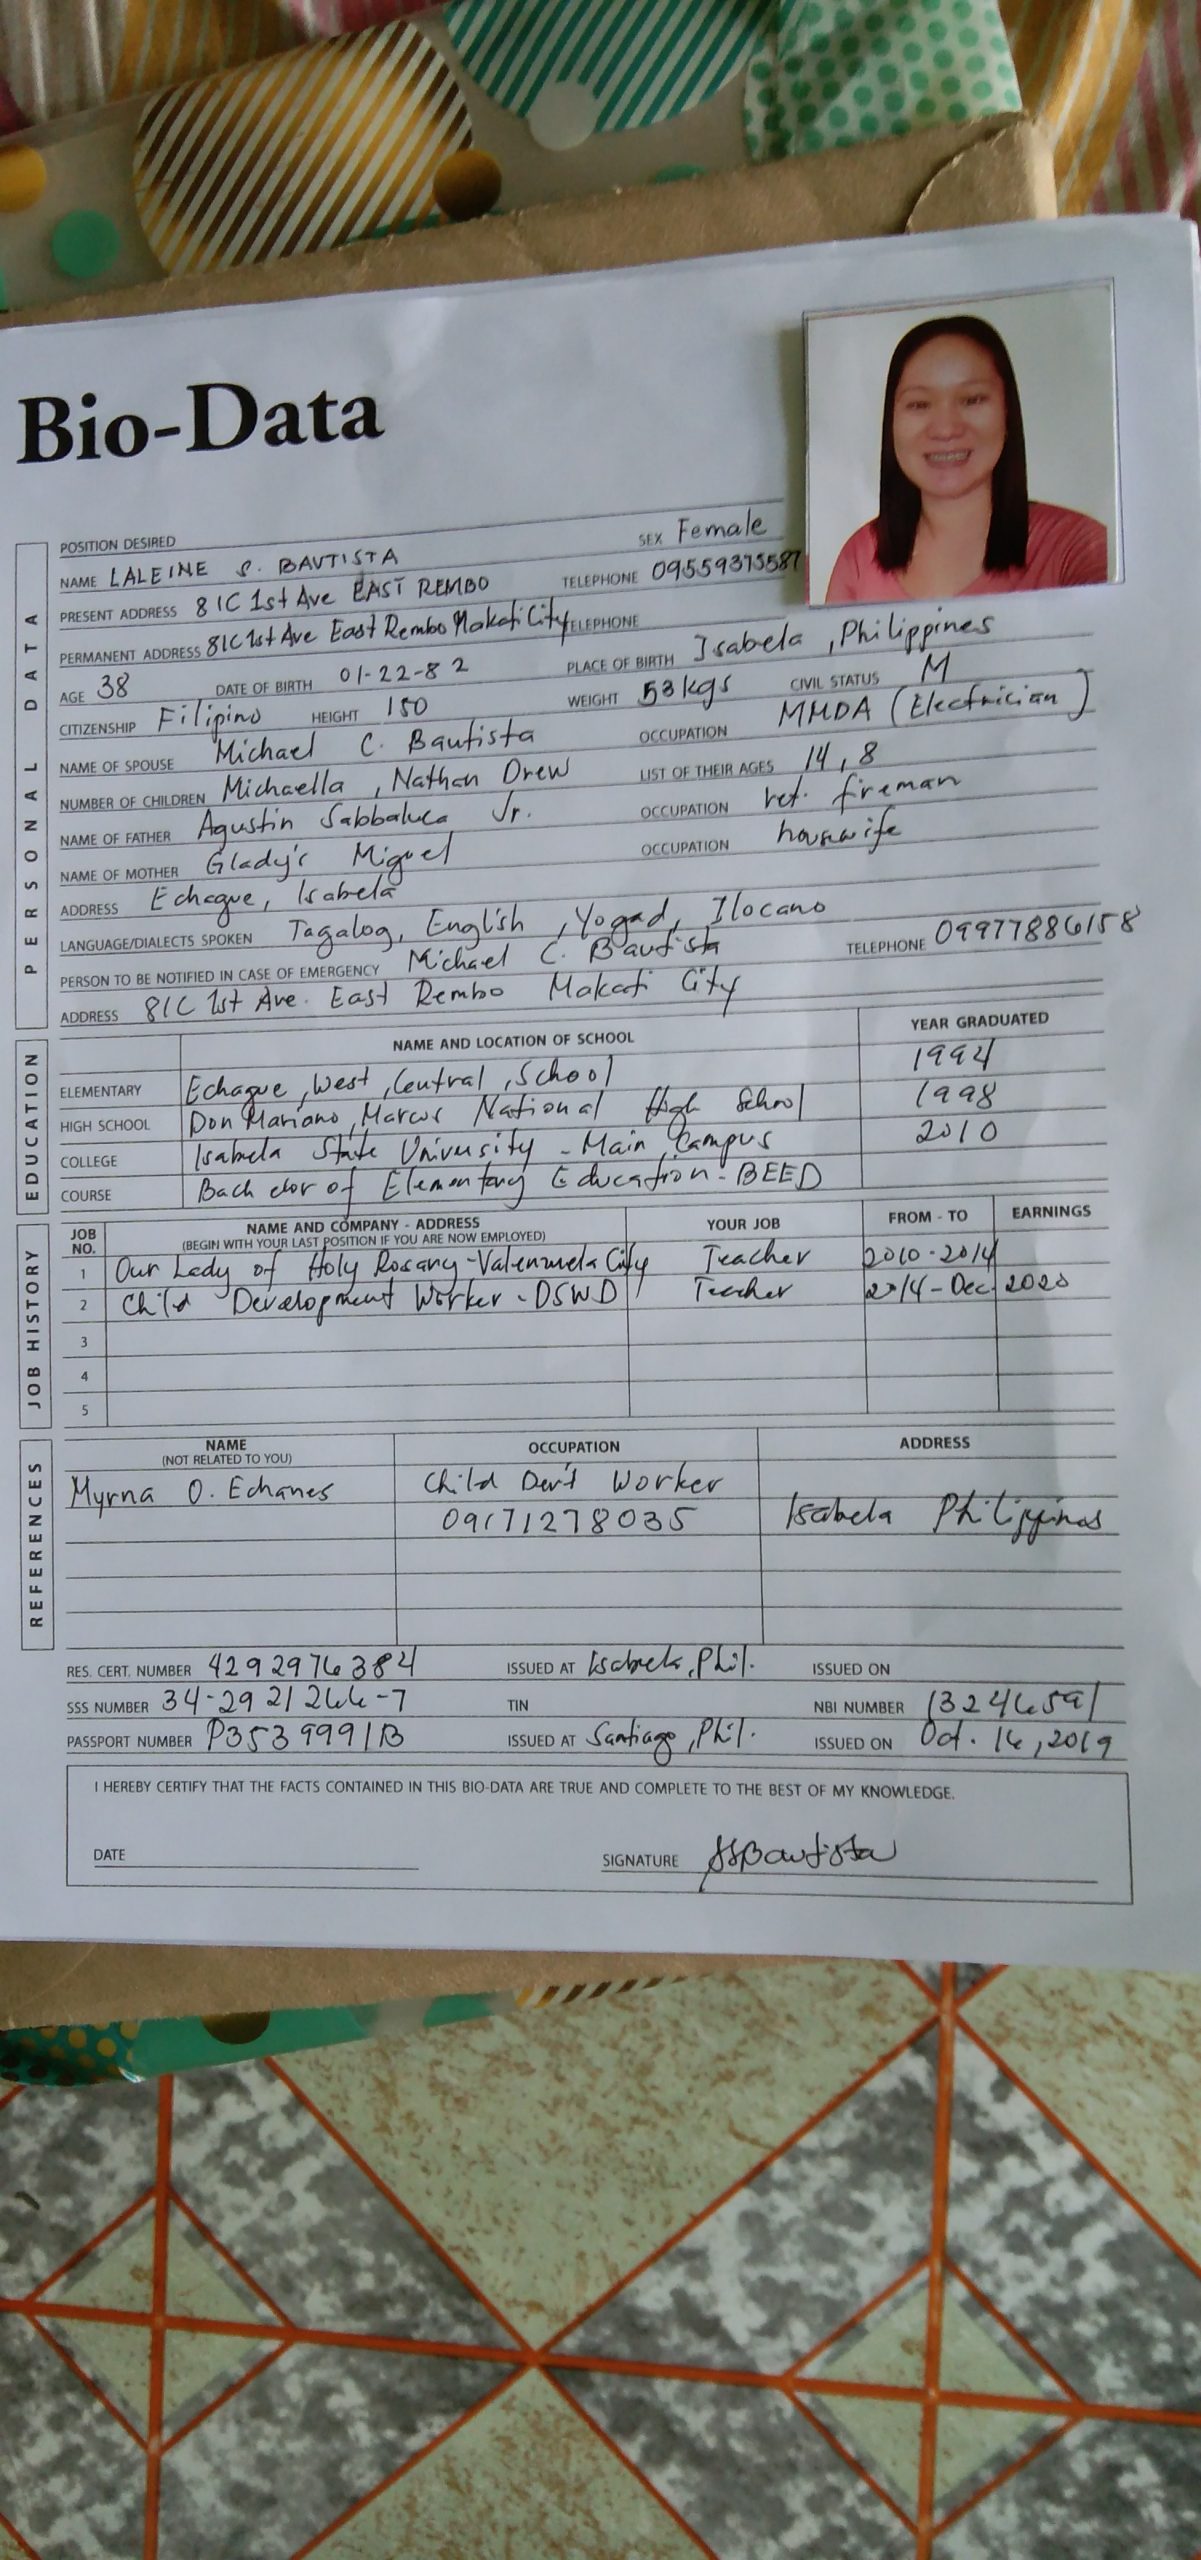 Bio-Data
PERSONAL DATA
POSITION DESIRED SEX Female
NAME LALEINE S. BAUTISTA TELEPHONE 09559375587
PRESENT ADDRESS 81C 1st Ave EAST REMBO
PERMANENT ADDRESS 81C 1st Ave East Rembo Makati City TELEPHONE
AGE 38 DATE OF BIRTH 01-22-82 PLACE OF BIRTH Isabela, Philippines
CITIZENSHIP Filipino HEIGHT 150 WEIGHT 53 kgs CIVIL STATUS M
NAME OF SPOUSE Michael C. Bautista OCCUPATION MMDA (Electrician)
NUMBER OF CHILDREN Michaella, Nathan Drew LIST OF THEIR AGES 14, 8
NAME OF FATHER Agustin Sabbaluca Jr. OCCUPATION ret. fireman
NAME OF MOTHER Glady's Miguel OCCUPATION housewife
ADDRESS Echague, Isabela
LANGUAGE/DIALECTS SPOKEN Tagalog, English, Yogad, Ilocano
PERSON TO BE NOTIFIED IN CASE OF EMERGENCY Michael C. Bautista TELEPHONE 09977886158
ADDRESS 81C 1st Ave. East Rembo Makati City
EDUCATION
NAME AND LOCATION OF SCHOOL YEAR GRADUATED
ELEMENTARY Echague, West, Central, School 1994
HIGH SCHOOL Don Mariano, Marcos National High School 1998
COLLEGE Isabela State University - Main Campus 2010
COURSE Bachelor of Elementary Education - BEED
JOB HISTORY
JOB NO. NAME AND COMPANY - ADDRESS YOUR JOB FROM - TO EARNINGS
(BEGIN WITH YOUR LAST POSITION IF YOU ARE NOW EMPLOYED)
1 Our Lady of Holy Rosary - Valenzuela City Teacher 2010-2014
2 Child Development Worker - DSWD Teacher 2014 - Dec. 2020
3
4
5
REFERENCES
NAME OCCUPATION ADDRESS
(NOT RELATED TO YOU)
Myrna O. Echanes Child Dev't Worker
09171278035 Isabela Philippines
RES. CERT. NUMBER 4292976384 ISSUED AT Isabela, Phil. ISSUED ON
SSS NUMBER 34-2921266-7 TIN NBI NUMBER 13246591
PASSPORT NUMBER P3539991B ISSUED AT Santiago, Phil. ISSUED ON Oct. 16, 2019
I HEREBY CERTIFY THAT THE FACTS CONTAINED IN THIS BIO-DATA ARE TRUE AND COMPLETE TO THE BEST OF MY KNOWLEDGE.
DATE SIGNATURE LSBautista